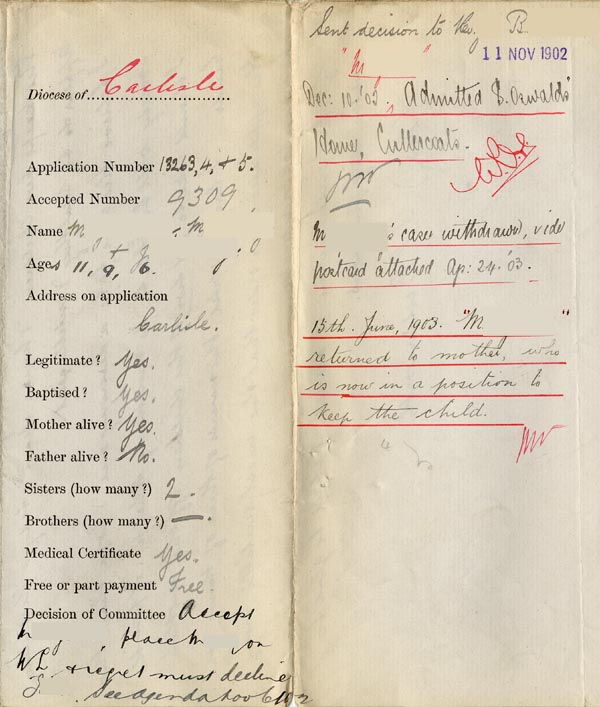 Diocese of Carlisle
Application Number 13263, 4, + 5.
Accepted Number 9309
Name M M
Ages 11, 9, 6.
Address on application
Carlisle.
Legitimate? Yes.
Baptised? Yes.
Mother alive? Yes.
Father alive? No.
Sisters (how many?) 2.
Brothers (how many?) —.
Medical Certificate Yes.
Free or part payment Free.
Decision of Committee Accept
place on
WL & regret must decline
See agenda
Sent decision to Rev. B.
11 NOV 1902
"M "
Dec: 10.'02, Admitted S. Oswald's
Home, Cullercoats.
M 's case withdrawn, vide
postcard attached Ap: 24.'03.
15th. June, 1903. "M "
returned to mother, who
is now in a position to
keep the child.